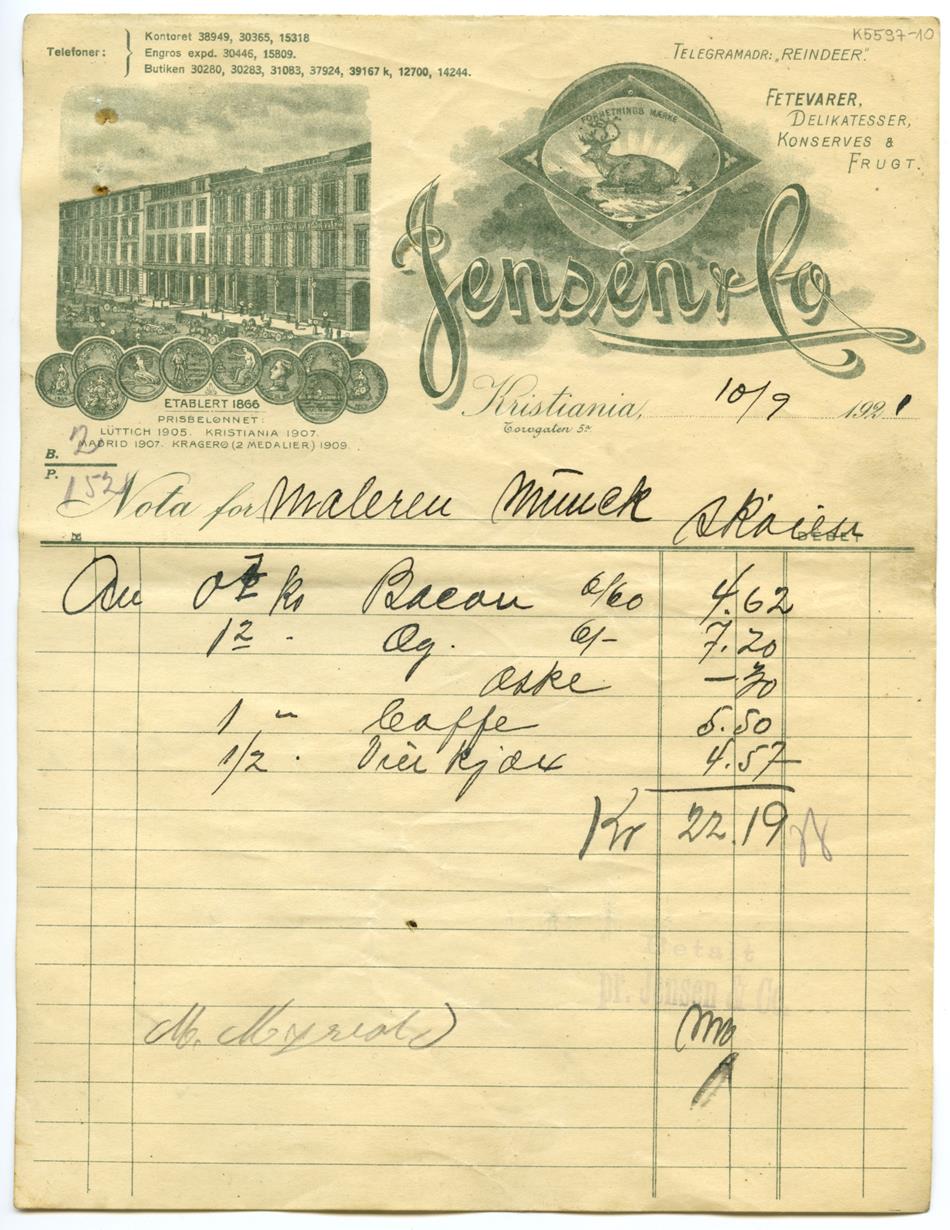 K5597-10
Telefoner:
Kontoret 38949, 30365, 15318
Engros expd. 30446, 15809.
Butiken 30280, 30283, 31083, 37924, 39167 k, 12700, 14244.
TELEGRAMADR: „REINDEER".
FETEVARER,
DELIKATESSER,
KONSERVES &
FRUGT.
FORRETNINGS MÆRKE
Jensen & Co
ETABLERT 1866
PRISBELØNNET:
LÜTTICH 1905. KRISTIANIA 1907.
MADRID 1907. KRAGERØ (2 MEDALIER) 1909.
Kristiania, 10/9 1921
Torvgaten 5a
B. 2
P. 152
Nota for Maleren Münck Skøien
DEBET
An 07 ko Bacon 6/60 4.62
12 " Og. 6/- 7.20
Æske - 30
1 " Caffe 5.50
1/2 " kjæx 4.57
Kr 22.19
Betalt
pr. Jensen & Co.